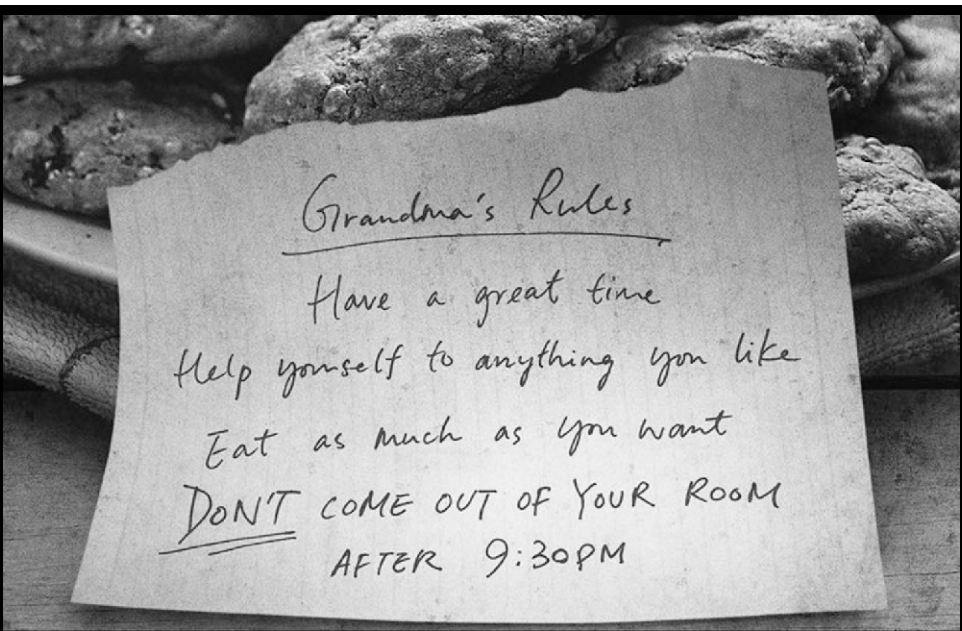 Grandma's Rules
Have a great time
Help yourself to anything you like
Eat as much as you want
DON'T COME OUT OF YOUR ROOM
AFTER 9:30PM